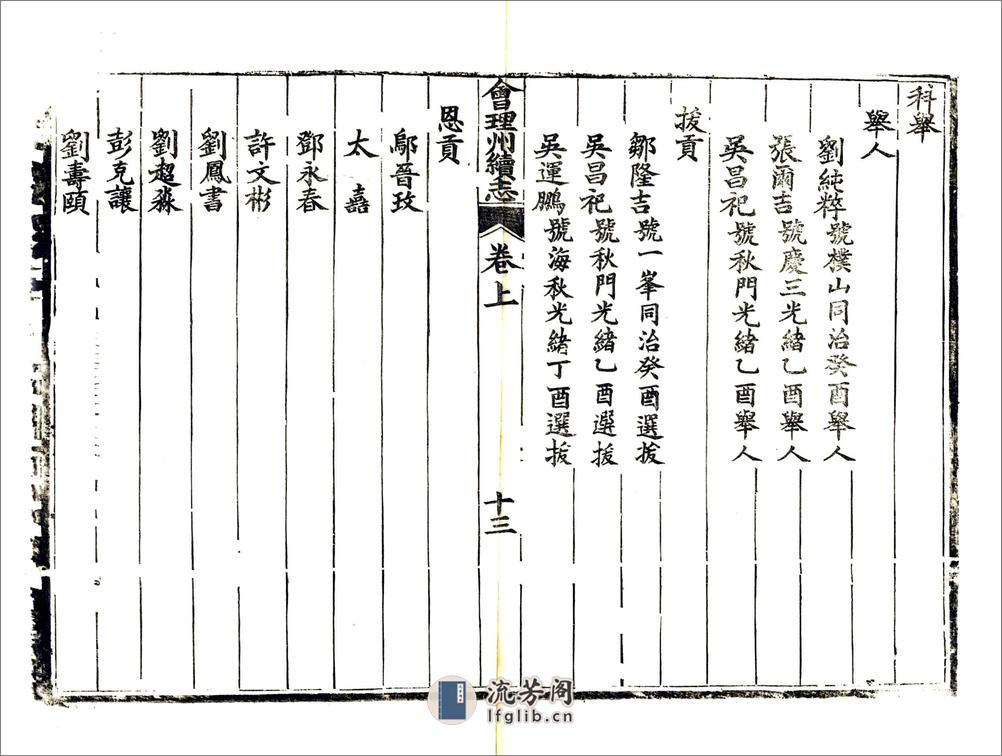 科舉
舉人
劉純粹號樸山同治癸酉舉人
張爾吉號慶三光緒乙酉舉人
吳昌祀號秋門光緒乙酉舉人
拔貢
鄒隆吉號一峯同治癸酉選拔
吳昌祀號秋門光緒乙酉選拔
吳運鵬號海秋光緒丁酉選拔
會理州續志
卷上
十三
恩貢
鄢晉玫
太嘉
鄧永春
許文彬
劉鳳書
劉超淼
彭克讓
劉壽頤
流芳阁
lfglib.cn